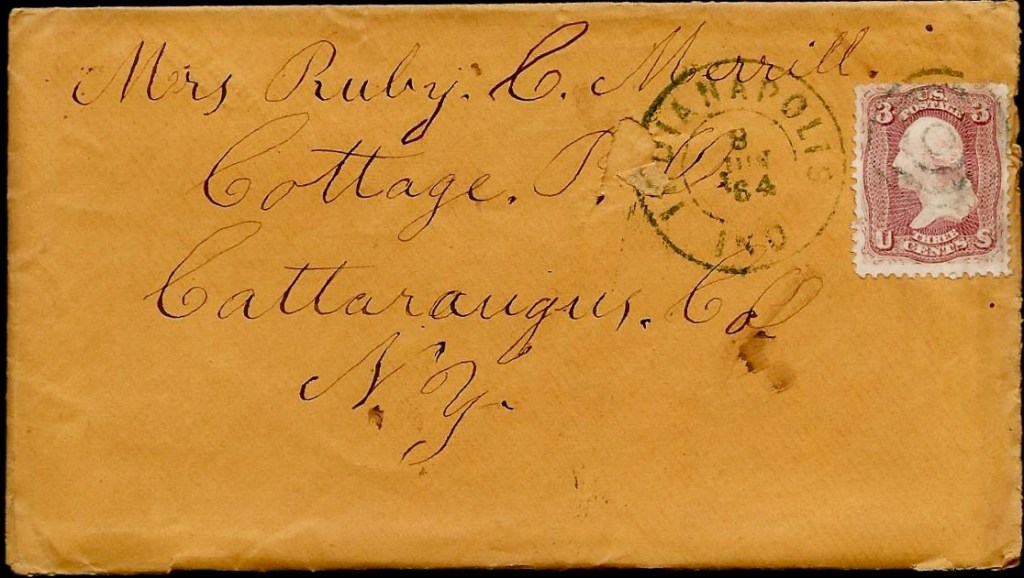 Mrs Ruby. C. Merrill.
Cottage. P. O
Cattaraugus. Co
N. Y.
INDIANAPOLIS
8
JUN
64
IND
U.S.
POSTAGE
3 3
THREE
U CENTS S